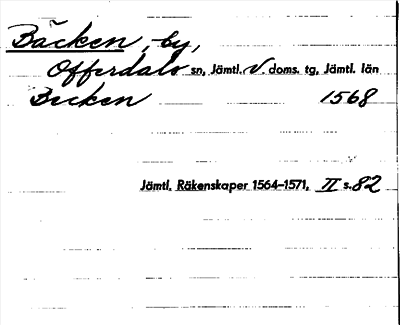 Bäcken, by,
Offerdals sn, Jämtl. V. doms. tg, Jämtl. län
Becken 1568
Jämtl. Räkenskaper 1564–1571, II s. 82